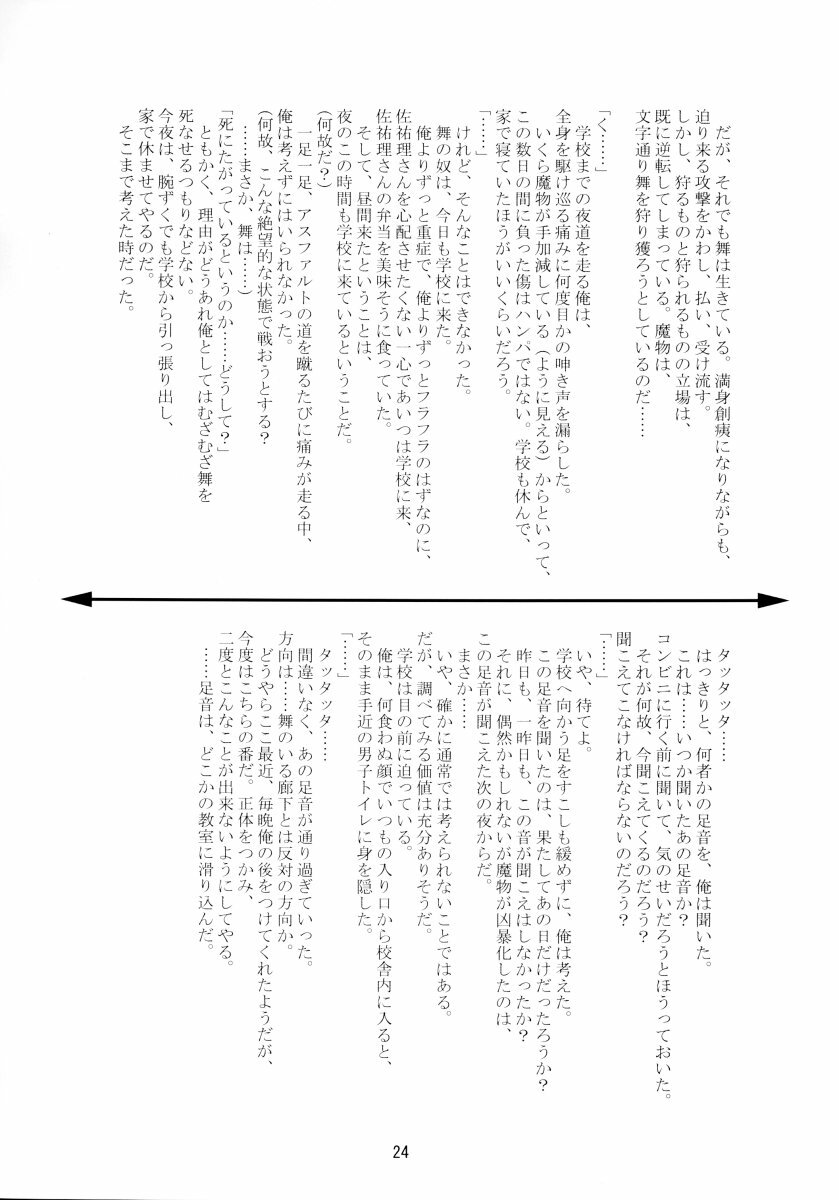 だが、それでも舞は生きている。満身創痍になりながらも、
迫り来る攻撃をかわし、払い、受け流す。
しかし、狩るものと狩られるものの立場は、
既に逆転してしまっている。魔物は、
文字通り舞を狩り獲ろうとしているのだ……
「く……」
学校までの夜道を走る俺は、
全身を駆け巡る痛みに何度目かの呻き声を漏らした。
いくら魔物が手加減している（ように見える）からといって、
この数日の間に負った傷はハンパではない。学校も休んで、
家で寝ていたほうがいいくらいだろう。
「……」
けれど、そんなことはできなかった。
舞の奴は、今日も学校に来た。
俺よりずっと重症で、俺よりずっとフラフラのはずなのに、
佐祐理さんを心配させたくない一心であいつは学校に来、
佐祐理さんの弁当を美味そうに食っていた。
そして、昼間来たということは、
夜のこの時間も学校に来ているということだ。
（何故だ？）
一足一足、アスファルトの道を蹴るたびに痛みが走る中、
俺は考えずにはいられなかった。
（何故、こんな絶望的な状態で戦おうとする？
……まさか、舞は……）
「死にたがっているというのか……どうして？」
ともかく、理由がどうあれ俺としてはむざむざ舞を
死なせるつもりなどない。
今夜は、腕ずくでも学校から引っ張り出し、
家で休ませてやるのだ。
そこまで考えた時だった。
タッタッタ……
はっきりと、何者かの足音を、俺は聞いた。
これは……いつか聞いたあの足音か？
コンビニに行く前に聞いて、気のせいだろうとほうっておいた。
それが何故、今聞こえてくるのだろう？
聞こえてこなければならないのだろう？
「……」
いや、待てよ。
学校へ向かう足をすこしも緩めずに、俺は考えた。
この足音を聞いたのは、果たしてあの日だけだったろうか？
昨日も、一昨日も、この音が聞こえはしなかったか？
それに、偶然かもしれないが魔物が凶暴化したのは、
この足音が聞こえた次の夜からだ。
まさか……
いや、確かに通常では考えられないことではある。
だが、調べてみる価値は充分ありそうだ。
学校は目の前に迫っている。
俺は、何食わぬ顔でいつもの入り口から校舎内に入ると、
そのまま手近の男子トイレに身を隠した。
「……」
タッタッタ……
間違いなく、あの足音が通り過ぎていった。
方向は……舞のいる廊下とは反対の方向か。
どうやらここ最近、毎晩俺の後をつけてくれたようだが、
今度はこちらの番だ。正体をつかみ、
二度とこんなことが出来ないようにしてやる。
……足音は、どこかの教室に滑り込んだ。
24